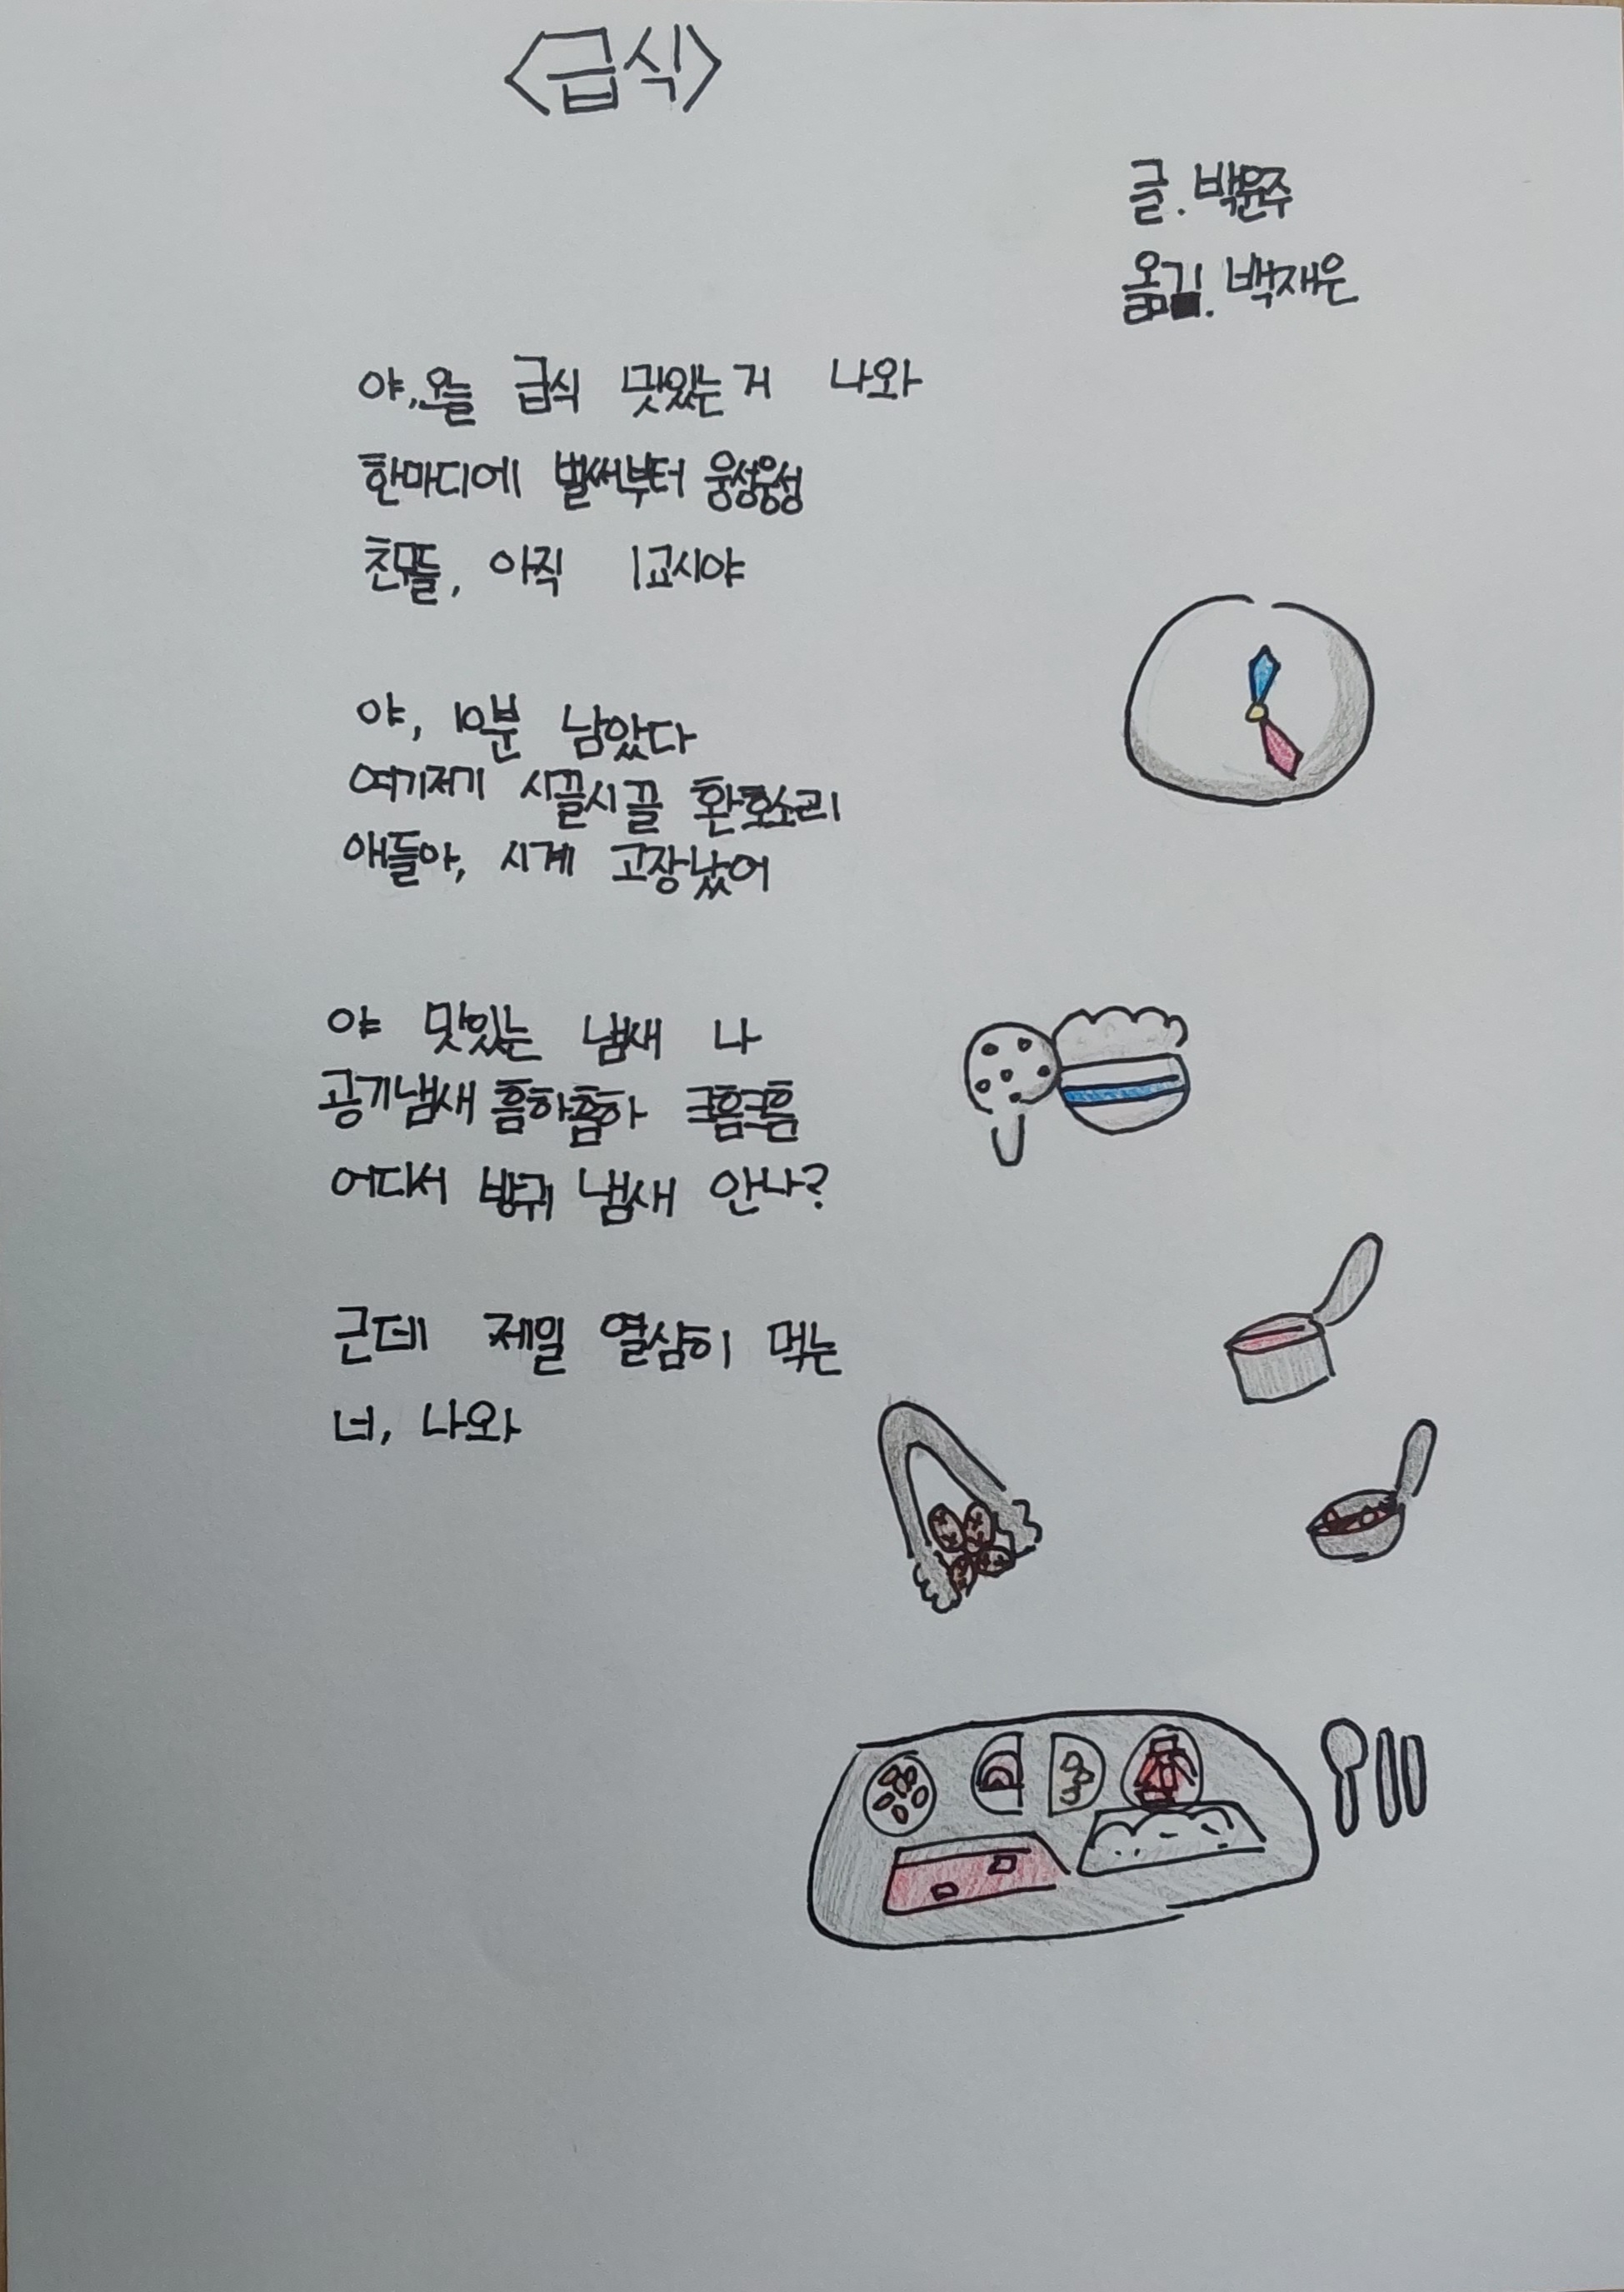 <급식>
글. 백윤주
옮김. 백재은
야, 오늘 급식 맛있는 거 나와
한마디에 벌써부터 웅성웅성
친구들, 아직 1교시야
야, 10분 남았다
여기저기 시끌시끌 환호소리
애들아, 시계 고장났어
야 맛있는 냄새 나
공기냄새 흠하흠하 크흠크흠
어디서 방귀 냄새 안나?
근데 제일 열심히 먹는
너, 나와